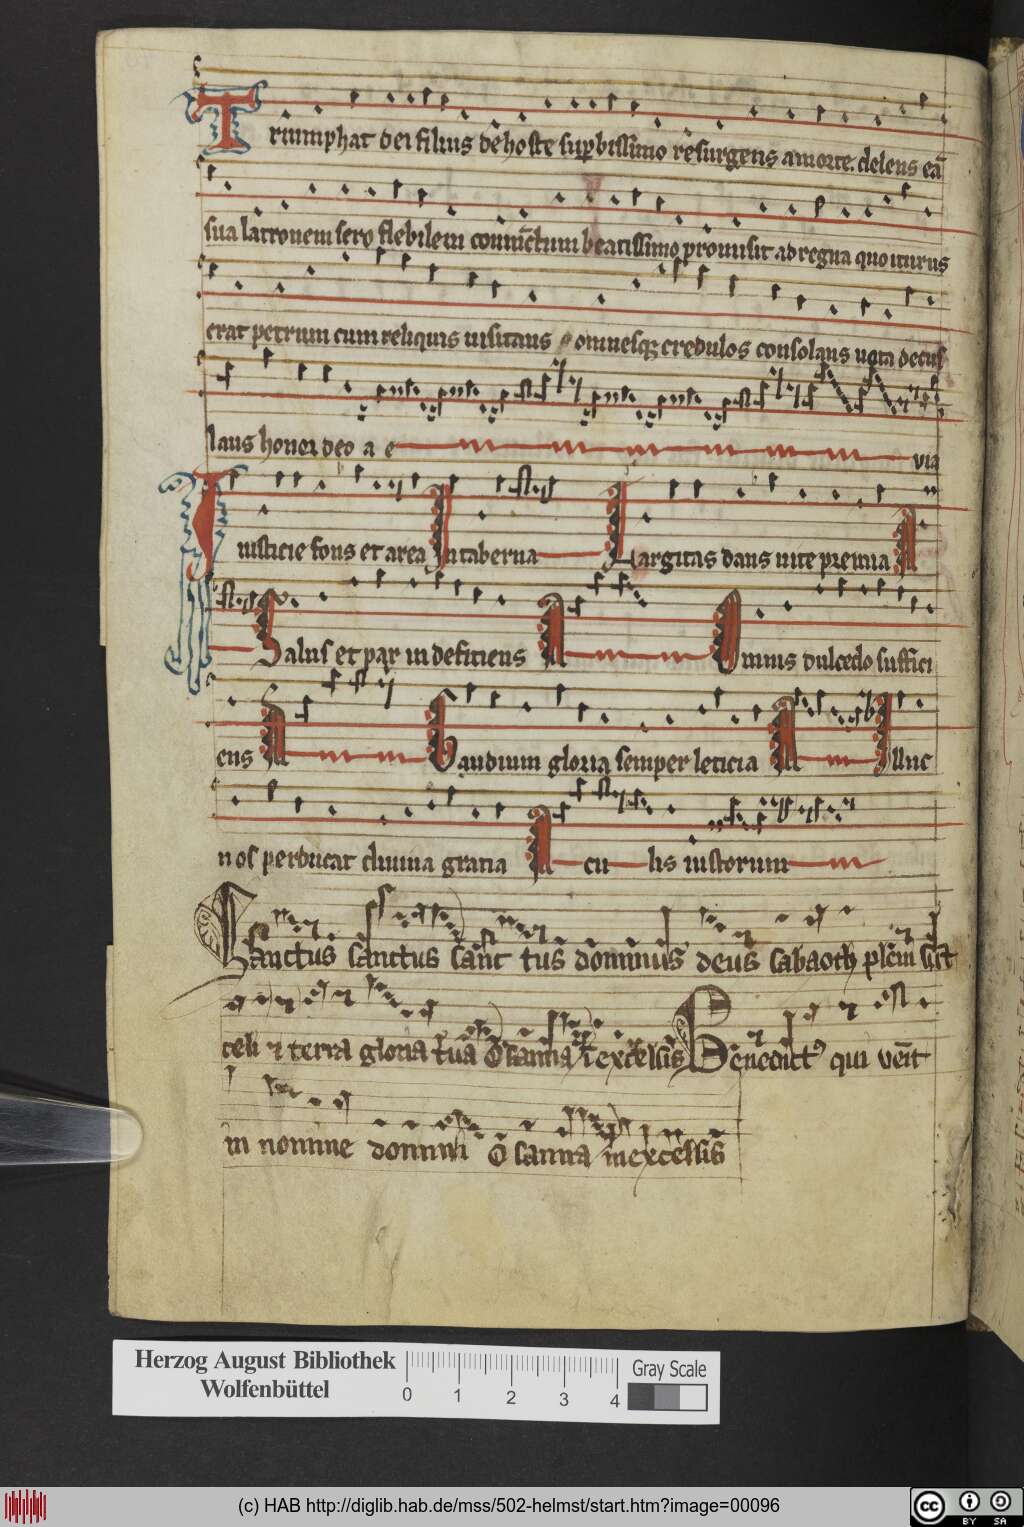 Triumphat dei filius de hoste supbissimo resurgens a morte. delens eā
sua latronem sero flebilem conuictum beatissimo promisit ad regna quo iturus
erat petrum cum reliquis uisitans omnesq; credulos consolans uota decus
laus honor deo a e uia
Iusticie fons et area In taberna Largitas dans uite premia A
Salus et pax indeficiens A Omnis dulcedo suffici
ens A Gaudium gloria semper leticia A Illuc
nos perducat diuina gratia A cu lis iustorum
Sanctus sanctus sanc tus dominus deus sabaoth plēni sūt
celi et terra gloria tua O sanna ī excelsis Benedict⁹ qui venīt
in nomine domini O sanna in excelsis
Herzog August Bibliothek
Wolfenbüttel
0 1 2 3 4
Gray Scale
(c) HAB http://diglib.hab.de/mss/502-helmst/start.htm?image=00096
cc BY SA